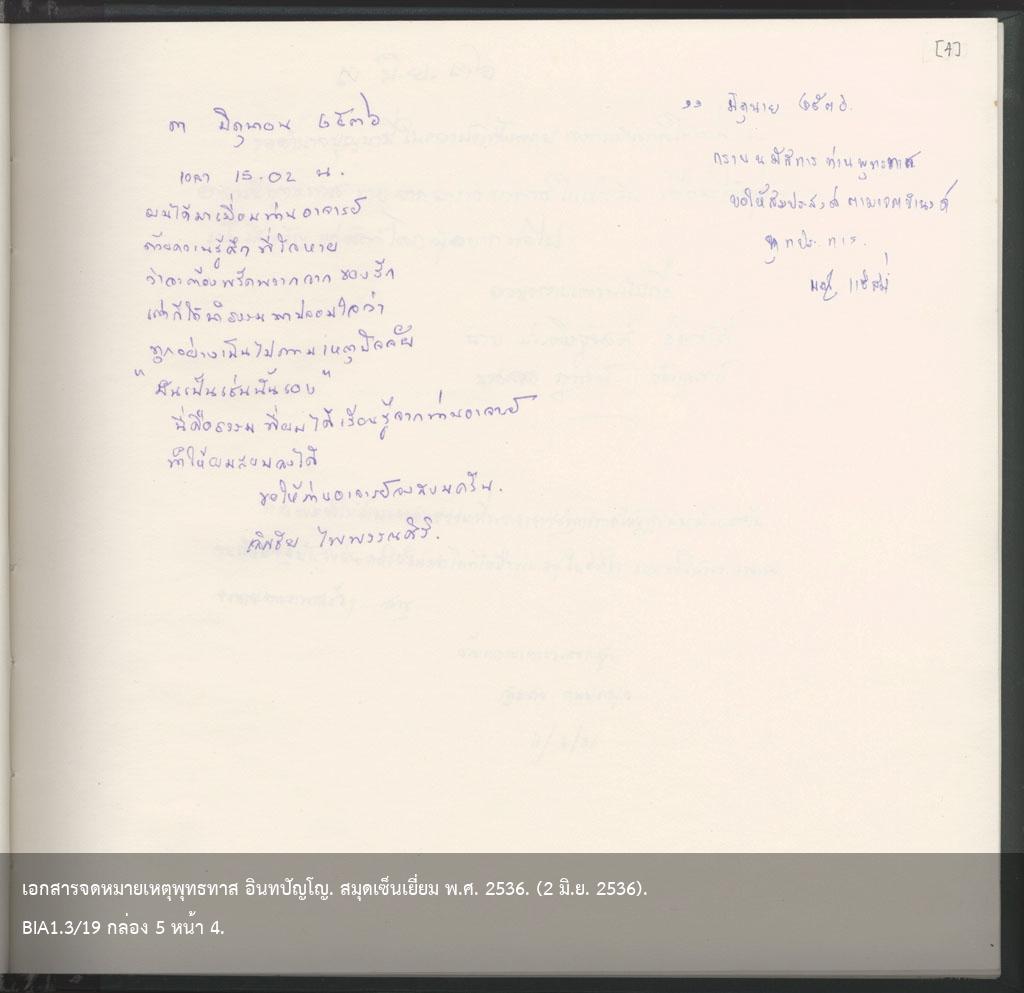 [4]
๓ มิถุนายน ๒๕๓๖
เวลา 15.02 น.
ผมได้มาเยี่ยมท่านอาจารย์
ด้วยความรู้สึกที่ใจหาย
ว่าจะต้องพรัดพรากจากของรัก
แต่ก็ใช้ธรรมมาปลอบใจว่า
ทุกอย่างเป็นไปตามเหตุปัจจัย
"มันเป็นเช่นนั้นเอง"
นี่คือธรรมที่ผมได้เรียนรู้จากท่านอาจารย์
ทำให้ผมสงบลงได้
ขอให้ท่านอาจารย์จงสงบครับ.
ไพพรรณศิริ.
๑๑ มิถุนาย ๒๕๓๖.
กราบนมัสการท่านพุทธทาส
ขอให้สมประสงค์ตามเจตจำนงค์
ทุกประการ.
แซ่ลิ่ม
เอกสารจดหมายเหตุพุทธทาส อินทปัญโญ. สมุดเซ็นเยี่ยม พ.ศ. 2536. (2 มิ.ย. 2536).
BIA1.3/19 กล่อง 5 หน้า 4.